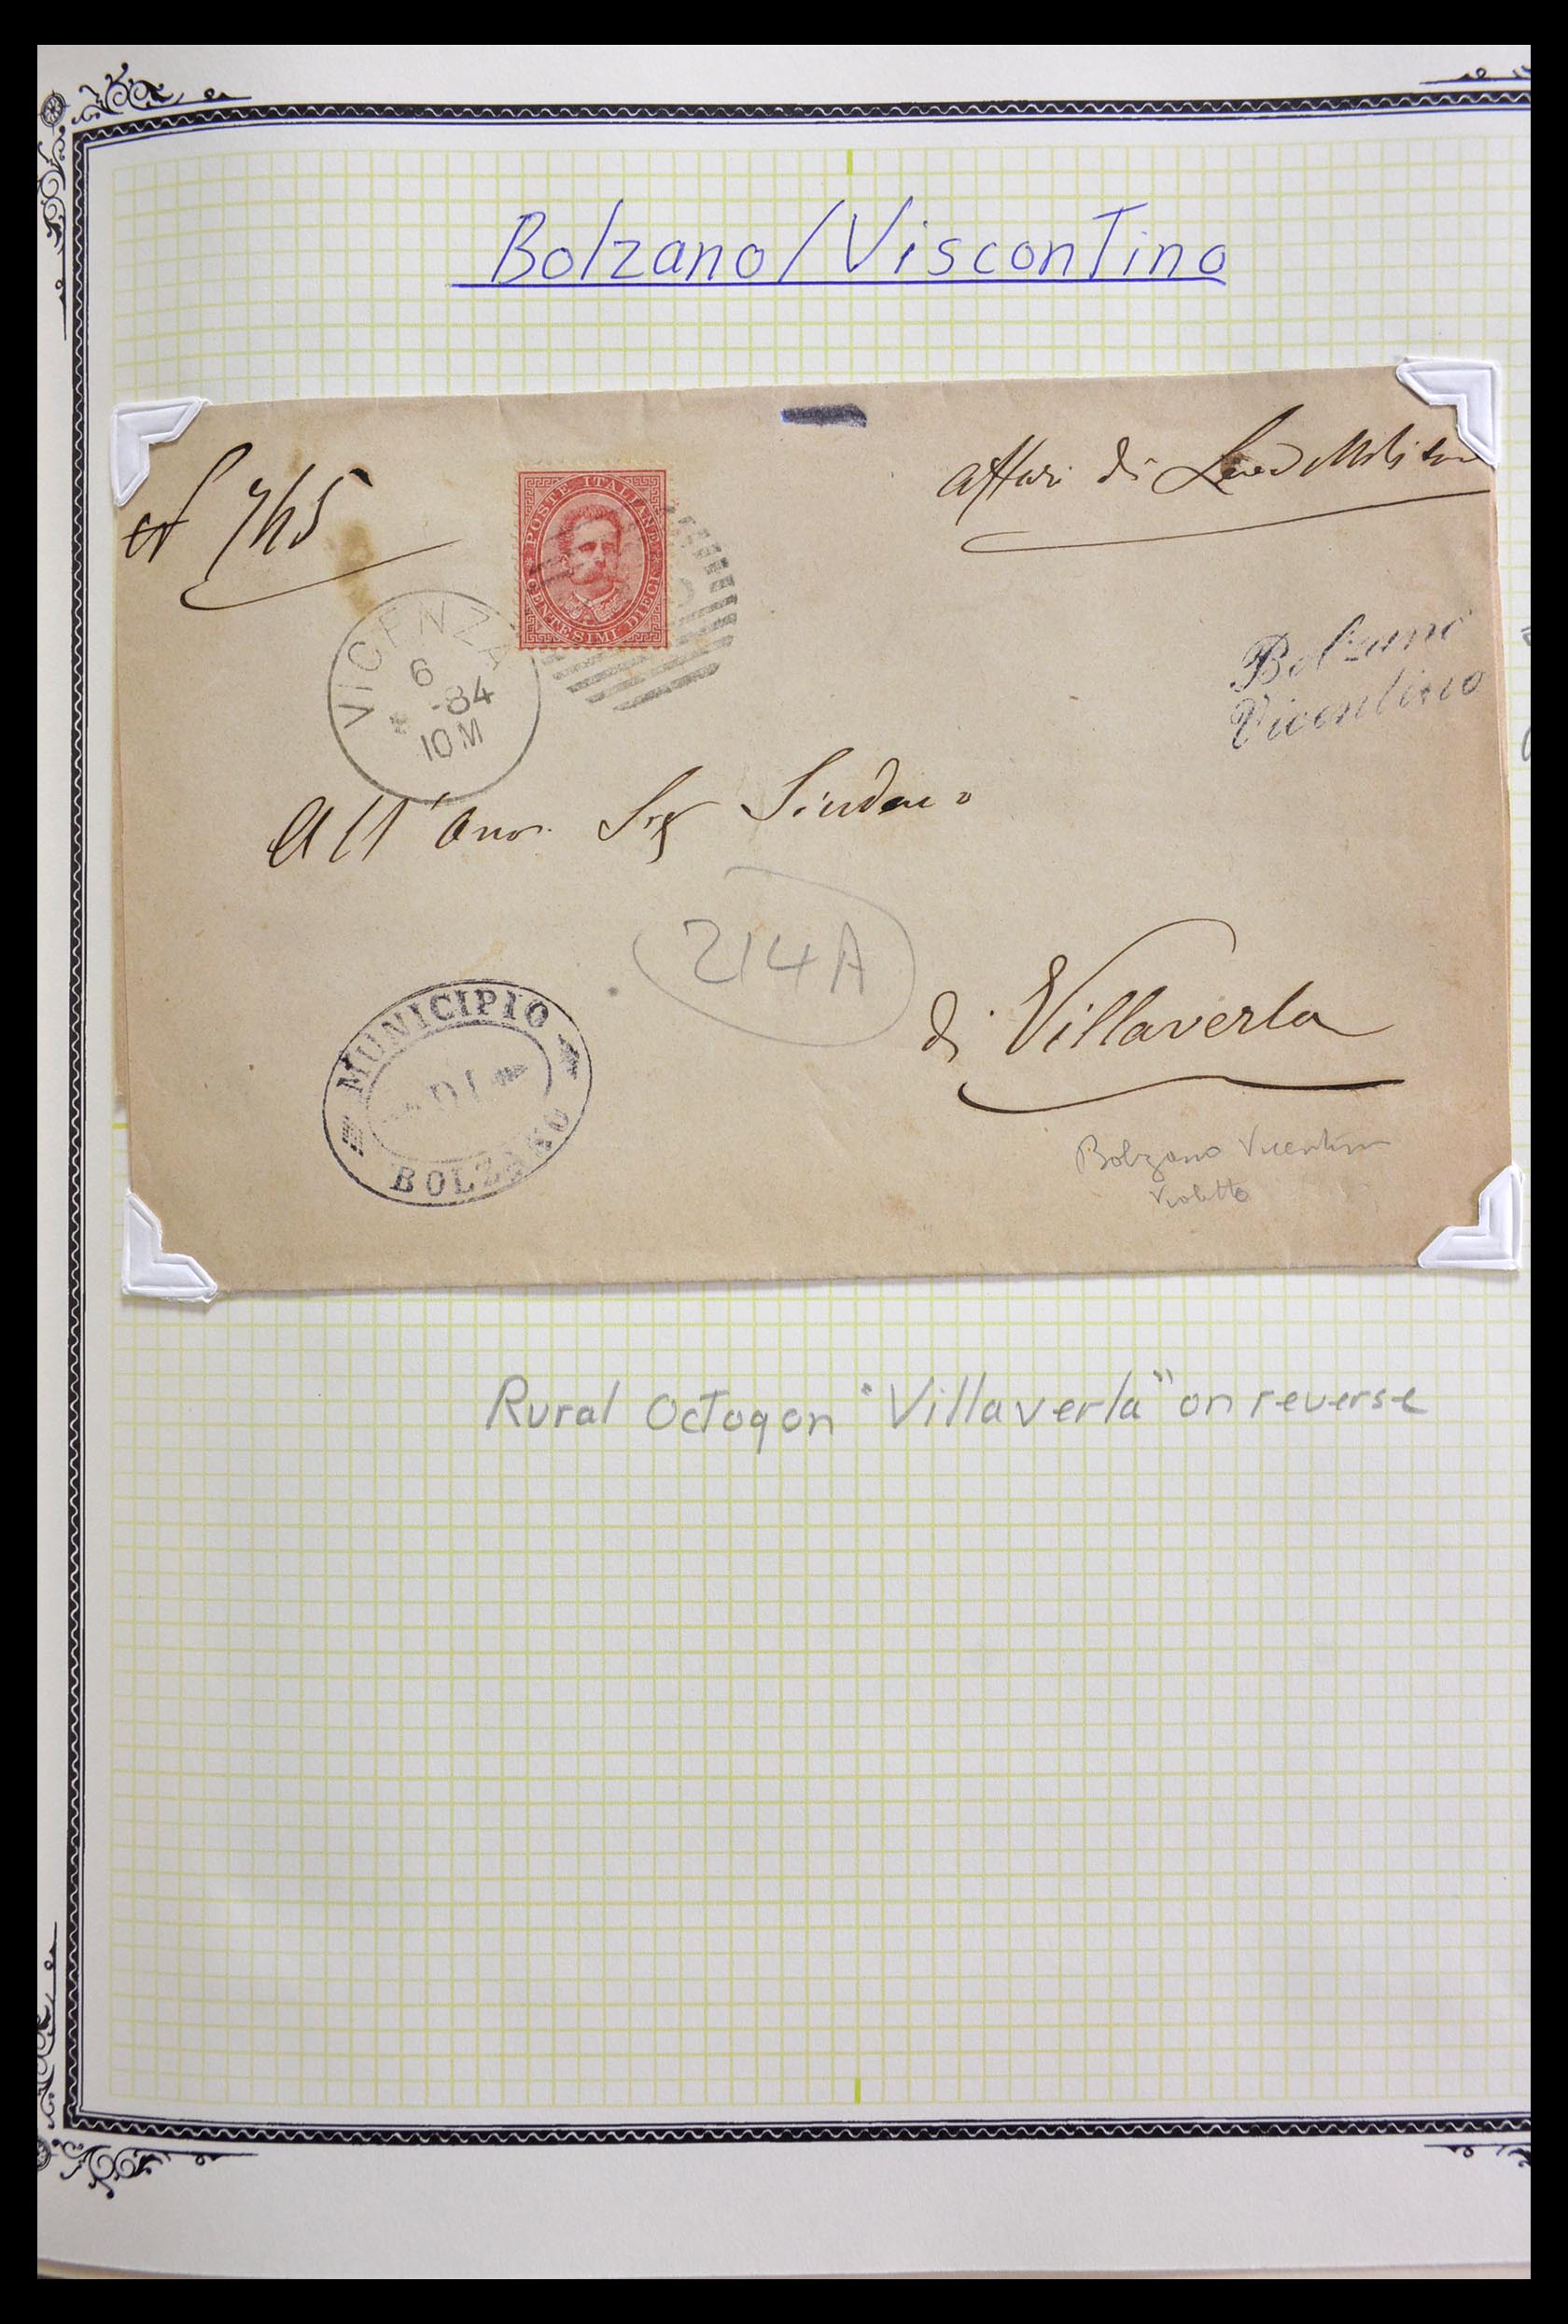 Bolzano/Viscontino
N 765
affari di Leva Militare
POSTE ITALIANE
CENTESIMI DIECI
VICENZA
6
-84
10 M
Bolzano
Vicentino
All' Onor. Sig Sindaco
214A
di Villaverla
MUNICIPIO
DI
BOLZANO
Bolzano Vicentino
violetto
Rural Octogon "Villaverla" on reverse